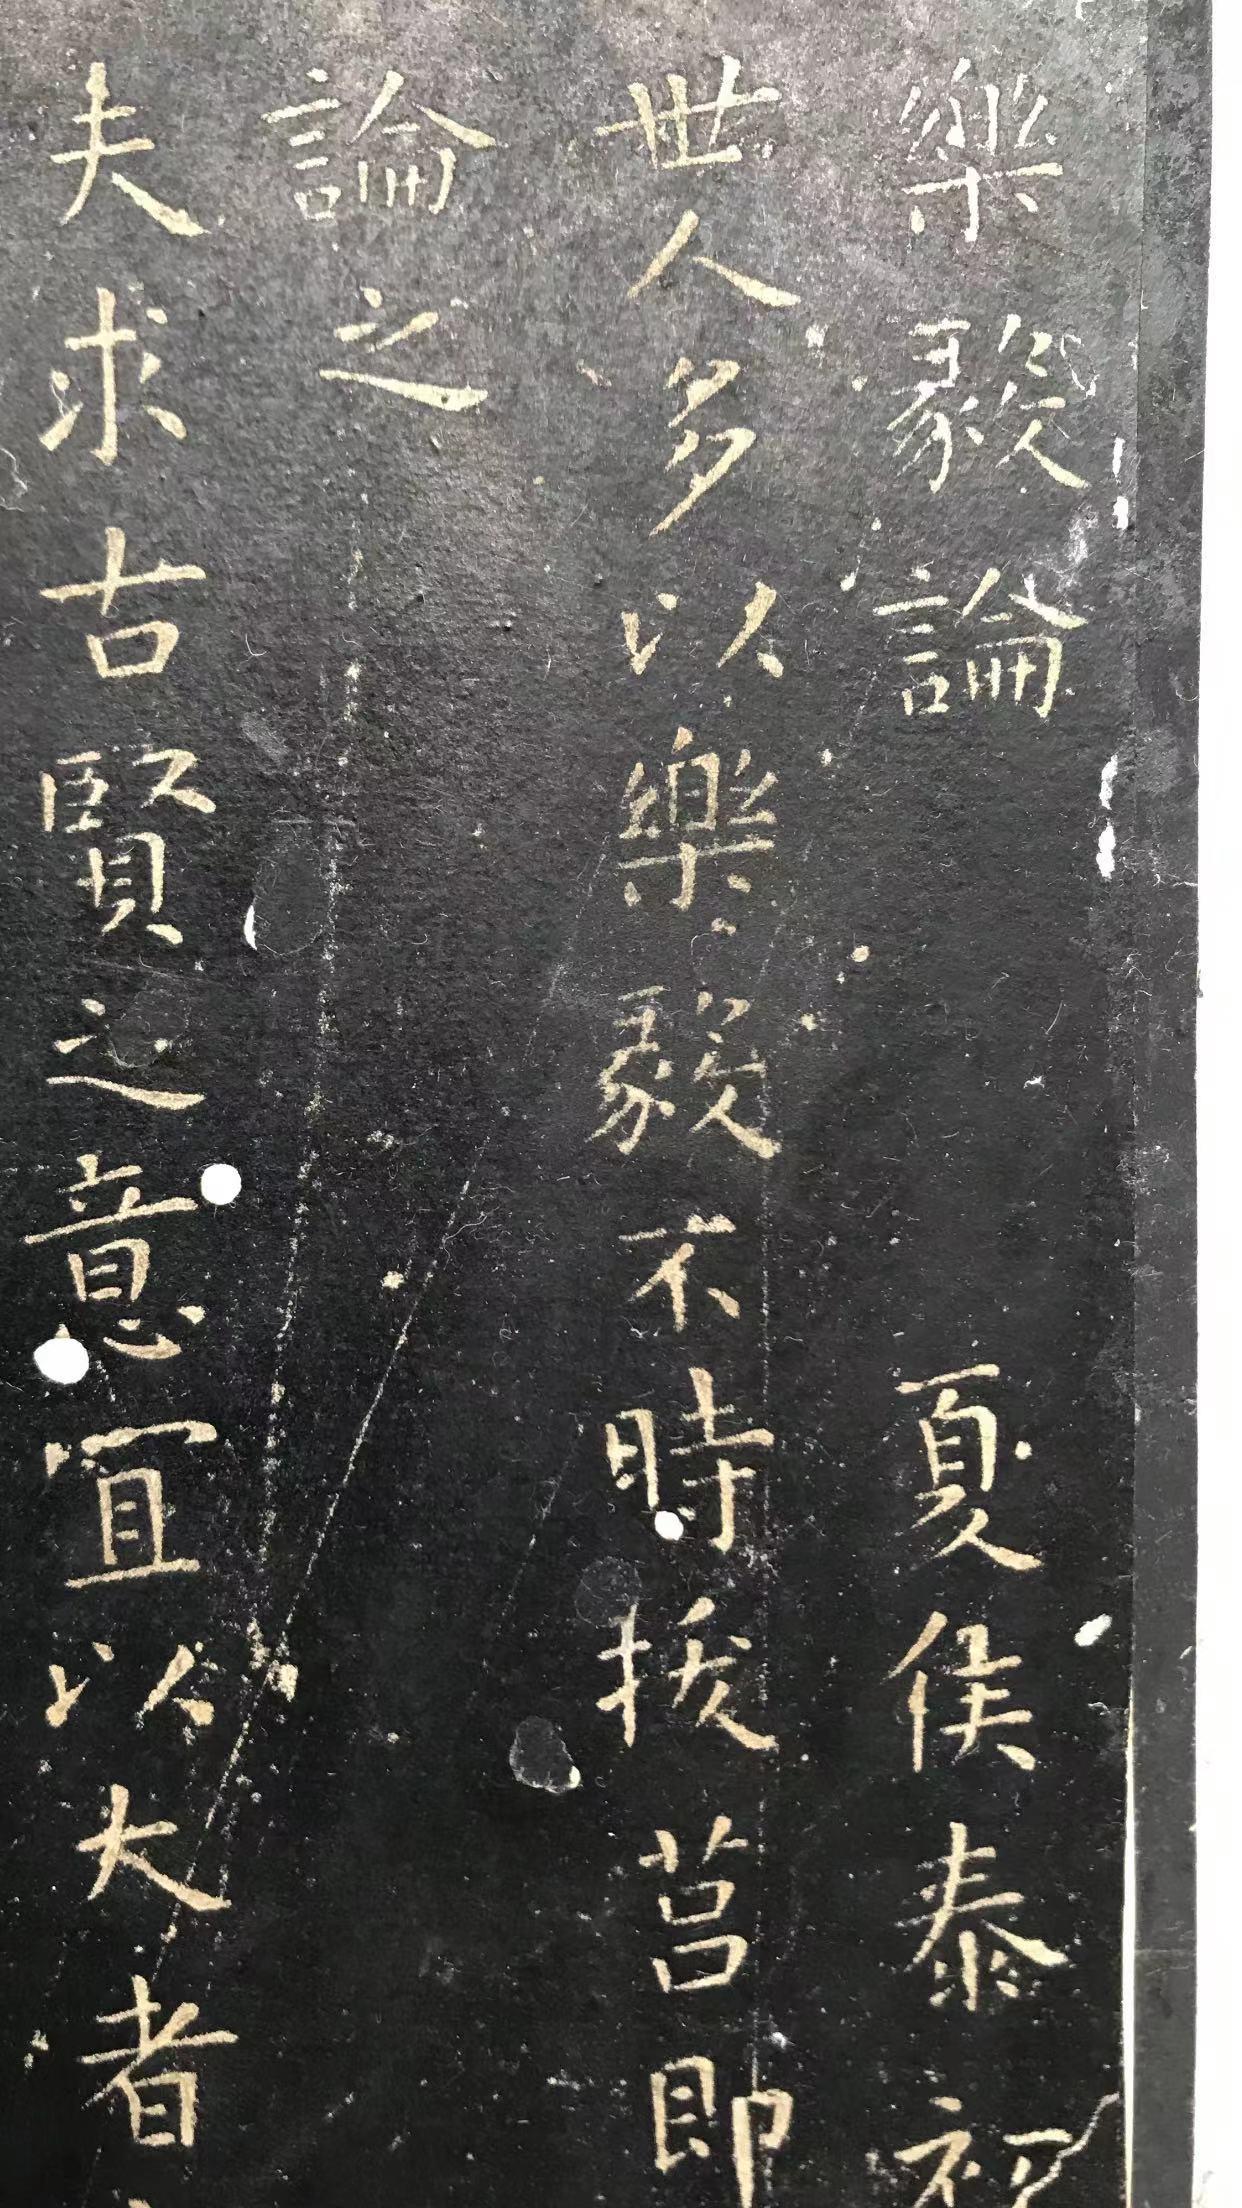 樂毅論　夏侯泰初
世人多以樂毅不時拔莒即
論之
夫求古賢之意宜以大者